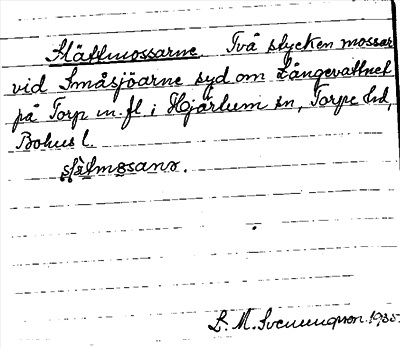 Slättmossarne. Två stycken mossar
vid Småsjöarne syd om Långevattnet
på Torp m. fl. i Hjärtum sn, Torpe hd,
Bohus l.
slätmosanə.
S. M. Svenungsson. 1935.